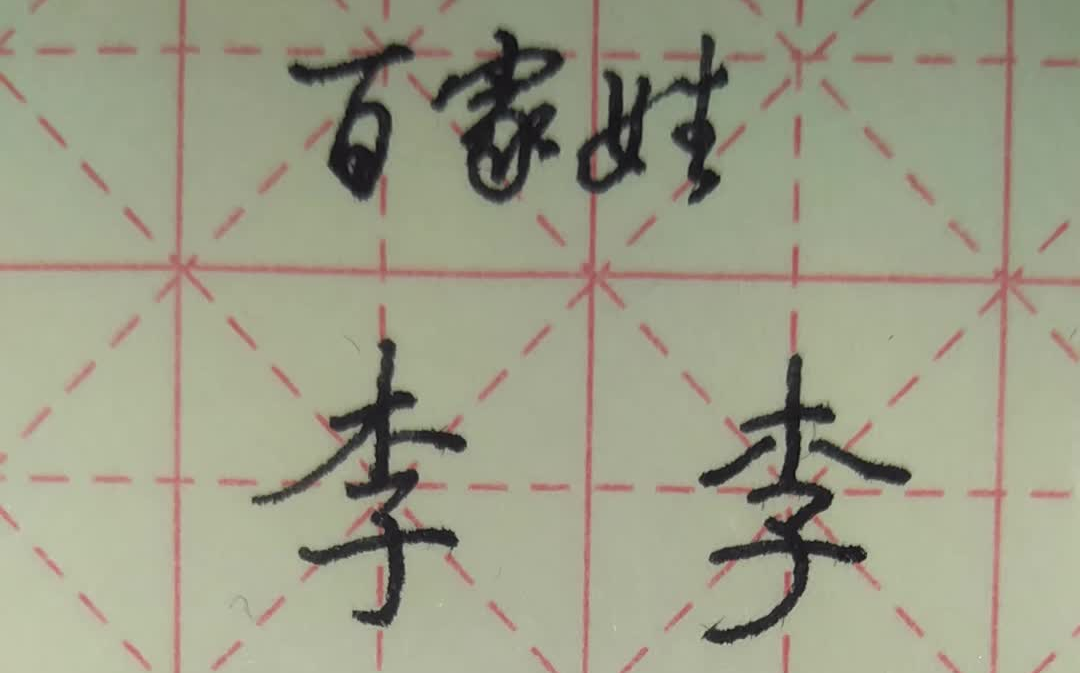 百家姓
李 李